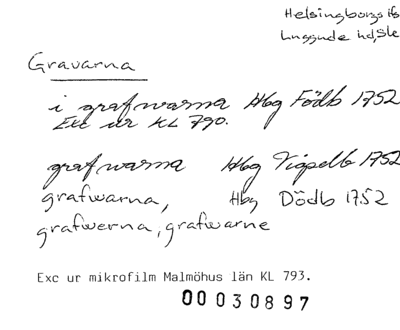 Helsingborgs
Luggude hd, Sk
Gravarna
i grafwarna Hbg Födb 1752
Exc ur KL 790.
grafwarna Hbg Vigselb 1752
grafwarna, Hbg Dödb 1752
grafwerna, grafwarne
Exc ur mikrofilm Malmöhus län KL 793.
00030897